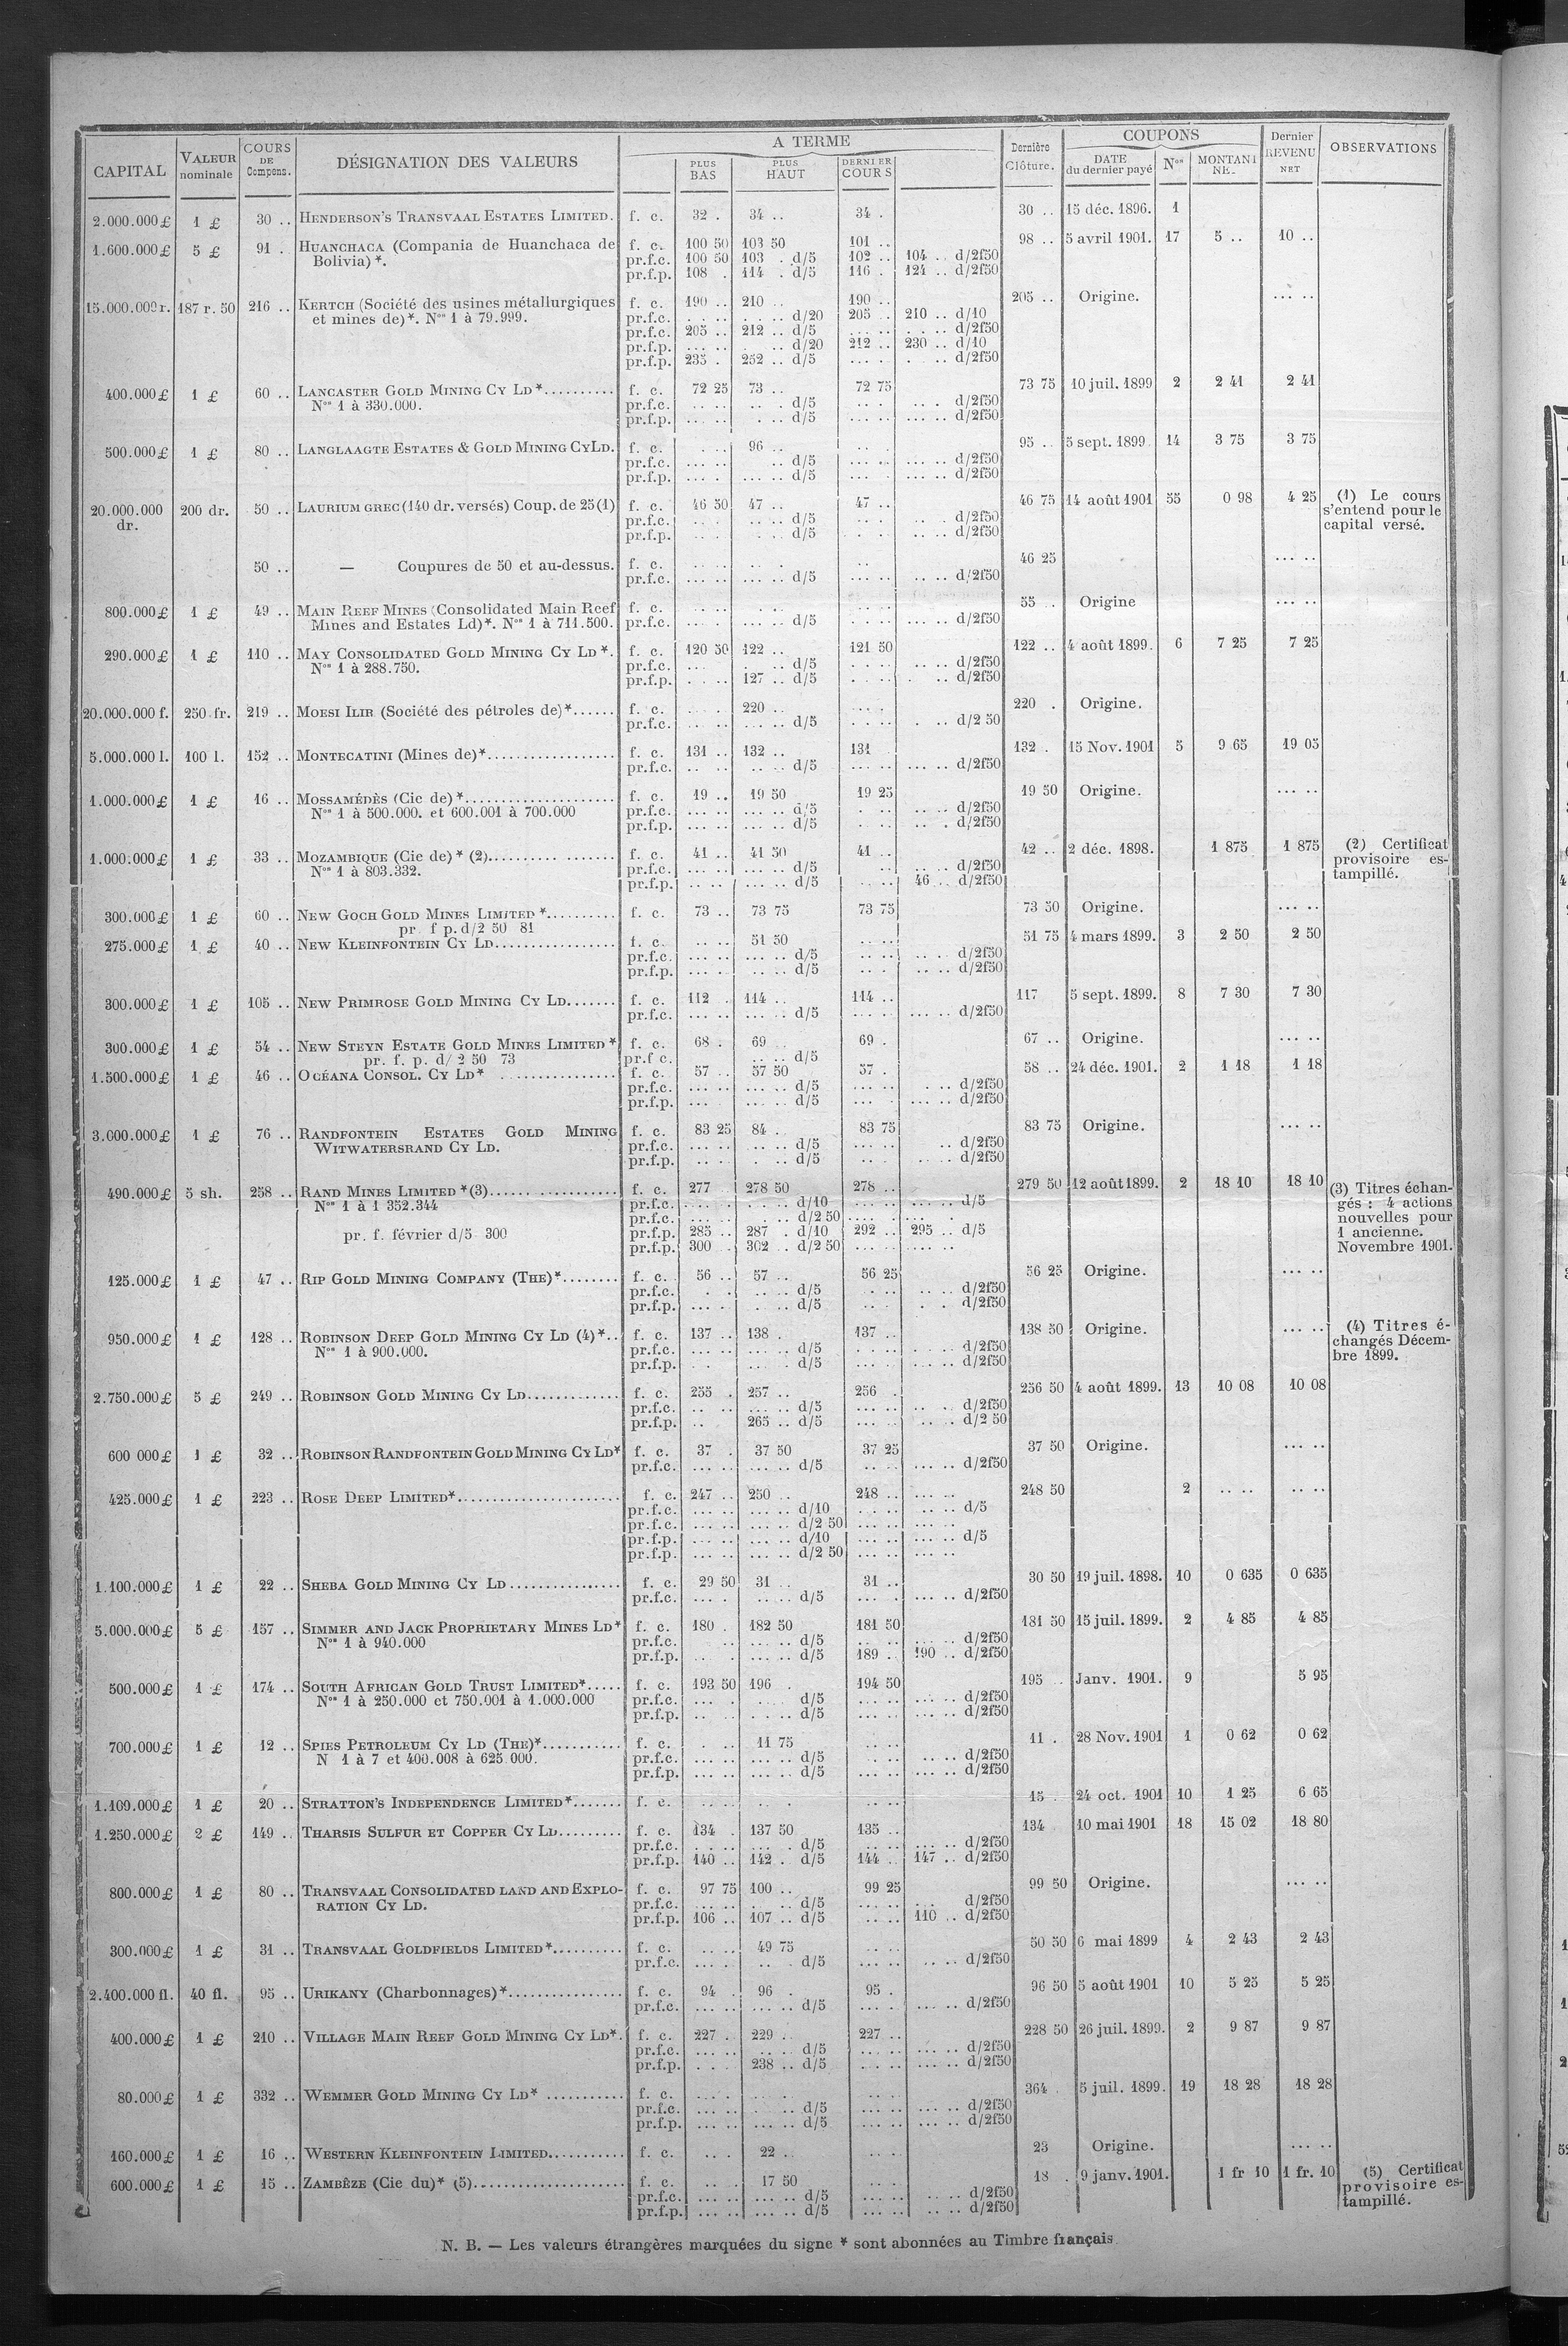 CAPITAL | VALEUR nominale | COURS DE Compens. | DÉSIGNATION DES VALEURS | A TERME | PLUS BAS | PLUS HAUT | DERNIER COURS | Dernière Clôture. | COUPONS | DATE du dernier payé | Nos | MONTANT NET | Dernier REVENU NET | OBSERVATIONS
2.000.000 £ 1 £ 30 .. HENDERSON'S TRANSVAAL ESTATES LIMITED. f. c. 32 . 34 .. 34 . 30 .. 15 déc. 1896. 1
1.600.000 £ 5 £ 91 . HUANCHACA (Compania de Huanchaca de f. c. 100 50 103 50 101 .. 98 .. 5 avril 1901. 17 5 .. 10 ..
Bolivia) *. pr.f.c. 100 50 103 . d/5 102 .. 104 .. d/2f50
pr.f.p. 108 . 114 . d/5 116 . 124 .. d/2f50
15.000.000 r. 187 r. 50 216 .. KERTCH (Société des usines métallurgiques f. c. 190 .. 210 .. 190 .. 205 .. Origine. ... ..
et mines de)*. Nos 1 à 79.999. pr.f.c. . . . . . . . d/20 205 .. 210 .. d/10
pr.f.c. 205 .. 212 .. d/5 ... .. . . .. d/2f50
pr.f.p. ... .. . .. d/20 212 .. 230 .. d/10
pr.f.p. 235 . 252 .. d/5 ... . . .. d/2f50
400.000 £ 1 £ 60 .. LANCASTER GOLD MINING CY LD*.......... f. c. 72 25 73 .. 72 75 73 75 10 juil. 1899 2 2 41 2 41
Nos 1 à 330.000. pr.f.c. .. .. .. . d/5 .. . .. . d/2f50
pr.f.p. ... .. . .. d/5 ... .. ... .. d/2f50
500.000 £ 1 £ 80 .. LANGLAAGTE ESTATES & GOLD MINING CYLD. f. c. . .. 96 .. .. . 95 .. 5 sept. 1899 14 3 75 3 75
pr.f.c. ... .. .. d/5 ... .. ... .. d/2f50
pr.f.p. ... . ... .. d/5 ... .. ... .. d/2f50
20.000.000 dr. 200 dr. 50 .. LAURIUM GREC (140 dr. versés) Coup. de 25 (1) f. c. 46 50 47 .. 47 .. 46 75 14 août 1901 55 0 98 4 25 (1) Le cours
pr.f.c. .. . .. .. d/5 .. . .. . d/2f50 s'entend pour le
pr.f.p. .. . . .. d/5 . . .. .. d/2f50 capital versé.
50 .. — Coupures de 50 et au-dessus. f. c. .. .. .. . .. 46 25 ... ..
pr.f.c. ... .. ... .. d/5 ... .. .. .. d/2f50
800.000 £ 1 £ 49 .. MAIN REEF MINES (Consolidated Main Reef f. c. .. .. . . .. .. 55 .. Origine ... ..
Mines and Estates Ld)*. Nos 1 à 711.500. pr.f.c. ... . ... .. d/5 .. .. ... .. d/2f50
290.000 £ 1 £ 110 .. MAY CONSOLIDATED GOLD MINING CY LD *. f. c. 120 50 122 .. 121 50 122 .. 4 août 1899. 6 7 25 7 25
Nos 1 à 288.750. pr.f.c. ... . .. d/5 . . . .. .. d/2f50
pr.f.p. . . .. 127 .. d/5 . . .. . .. d/2f50
20.000.000 f. 250 fr. 219 .. MOESI ILIR (Société des pétroles de)*...... f. c. . . 220 .. ... . 220 . Origine. ... ..
pr.f.c. .. .. ... .. d/5 . . .. . .. d/2 50
5.000.000 l. 100 l. 152 .. MONTECATINI (Mines de)*.................. f. c. 131 .. 132 .. 131 132 . 15 Nov. 1901 5 9 65 19 05
pr.f.c. .. .. .. .. d/5 ... .. ... .. d/2f50
1.000.000 £ 1 £ 16 .. MOSSAMÉDÈS (Cie de) *..................... f. c. 19 .. 19 50 19 25 19 50 Origine. ... ..
Nos 1 à 500.000. et 600.001 à 700.000 pr.f.c. ... .. ... .. d/5 . .. .. .. d/2f50
pr.f.p. ... .. ... .. d/5 .. .. .. . d/2f50
1.000.000 £ 1 £ 33 .. MOZAMBIQUE (Cie de) * (2).......... ....... f. c. 41 .. 41 50 41 .. 42 .. 2 déc. 1898. 1 875 1 875 (2) Certificat
Nos 1 à 803.332. pr.f.c. ... .. ... .. d/5 .. .. .. d/2f50 provisoire es-
pr.f.p. .. .. ... .. d/5 .. .. 46 .. d/2f50 tampillé.
300.000 £ 1 £ 60 .. NEW GOCH GOLD MINES LIMITED *.......... f. c. 73 .. 73 75 73 75 73 50 Origine. ... ..
pr. f p. d/2 50 81
275.000 £ 1 £ 40 .. NEW KLEINFONTEIN CY LD................. f. c. .. .. 51 50 .. .. 51 75 4 mars 1899. 3 2 50 2 50
pr.f.c. ... .. ... .. d/5 ... .. .. . d/2f50
pr.f.p. ... . .. .. d/5 .. . .. .. d/2f50
300.000 £ 1 £ 105 .. NEW PRIMROSE GOLD MINING CY LD....... f. c. 112 . 114 .. 114 .. 117 5 sept. 1899. 8 7 30 7 30
pr.f.c. ... .. ... .. d/5 ... . ... .. d/2f50
300.000 £ 1 £ 54 .. NEW STEYN ESTATE GOLD MINES LIMITED * f. c. 68 . 69 .. 69 . 67 .. Origine. ... ..
pr. f. p. d/ 2 50 73 pr.f c. .. .. d/5
1.500.000 £ 1 £ 46 .. OCÉANA CONSOL. CY LD* ................ f. c. 57 .. 57 50 57 . 58 .. 24 déc. 1901. 2 1 18 1 18
pr.f.c. ... .. ... .. d/5 ... .. . .. d/2f50
pr.f.p. ... . ... .. d/5 ... . ... .. d/2f50
3.000.000 £ 1 £ 76 .. RANDFONTEIN ESTATES GOLD MINING f. c. 83 25 84 . 83 75 83 75 Origine. ... ..
WITWATERSRAND CY LD. pr.f.c. ... .. .. .. d/5 ... .. .. d/2f50
pr.f.p. .. .. . .. d/5 .. . .. .. d/2f50
490.000 £ 5 sh. 258 .. RAND MINES LIMITED *(3)...... ............. f. c. 277 . 278 50 278 .. 279 50 12 août 1899. 2 18 10 18 10 (3) Titres échan-
Nos 1 à 1 352.344 pr.f.c. ... .. . . .. d/10 ... .. ... .. d/5 gés : 4 actions
pr.f.c. ... .. . .. d/2 50 ... .. ... . nouvelles pour
pr. f. février d/5 300 pr.f.p. 285 .. 287 . d/10 292 .. 295 .. d/5 1 ancienne.
pr.f.p. 300 . 302 .. d/2 50 ... .. ... .. Novembre 1901.
125.000 £ 1 £ 47 .. RIP GOLD MINING COMPANY (THE)*........ f. c. 56 .. 57 .. 56 25 56 25 Origine. ... ..
pr.f.c. . . .. .. d/5 . .. .. .. d/2f50
pr.f.p. ... . . .. d/5 .. . . . d/2f50
950.000 £ 1 £ 128 .. ROBINSON DEEP GOLD MINING CY LD (4)*.. f. c. 137 .. 138 . 137 .. 138 50 Origine. ... .. (4) Titres é-
Nos 1 à 900.000. pr.f.c. ... .. ... .. d/5 . . .. . . .. d/2f50 changés Décem-
pr.f.p. . . ... . d/5 ... . .. .. d/2f50 bre 1899.
2.750.000 £ 5 £ 249 .. ROBINSON GOLD MINING CY LD............. f. c. 255 . 257 .. 256 . 256 50 4 août 1899. 13 10 08 10 08
pr.f.c. .. .. ... .. d/5 ... .. .. . d/2f50
pr.f.p. .. 265 .. d/5 ... .. .. .. d/2 50
600 000 £ 1 £ 32 .. ROBINSON RANDFONTEIN GOLD MINING CY LD* f. c. 37 . 37 50 37 25 37 50 Origine. ... ..
pr.f.c. ... .. ... .. d/5 .. .. ... .. d/2f50
425.000 £ 1 £ 223 .. ROSE DEEP LIMITED*....................... f. c. 247 .. 250 .. 248 .. ... .. 248 50 2 .. .. .. ..
pr.f.c. ... .. ... .. d/10 ... .. .. .. d/5
pr.f.c. ... .. ... .. d/2 50 ... .. ... ..
pr.f.p. ... .. ... .. d/10 ... .. ... .. d/5
pr.f.p. ... .. ... .. d/2 50 ... .. ... ..
1.100.000 £ 1 £ 22 .. SHEBA GOLD MINING CY LD................ f. c. 29 50 31 .. 31 .. 30 50 19 juil. 1898. 10 0 635 0 635
pr.f.c. ... . .. .. d/5 ... . ... .. d/2f50
5.000.000 £ 5 £ 157 .. SIMMER AND JACK PROPRIETARY MINES LD* f. c. 180 . 182 50 181 50 181 50 15 juil. 1899. 2 4 85 4 85
Nos 1 à 940.000 pr.f.c. .. ... .. d/5 .. .. ... .. d/2f50
pr.f.p. .. . ... .. d/5 189 .. 190 .. d/2f50
500.000 £ 1 £ 174 .. SOUTH AFRICAN GOLD TRUST LIMITED*..... f. c. 193 50 196 . 194 50 195 .. Janv. 1901. 9 5 95
Nos 1 à 250.000 et 750.001 à 1.000.000 pr.f.c. ... . . .. d/5 ... .. ... .. d/2f50
pr.f.p. .. . . .. d/5 ... .. ... .. d/2f50
700.000 £ 1 £ 12 .. SPIES PETROLEUM CY LD (THE)*........... f. c. . .. 11 75 .. .. 11 . 28 Nov. 1901 1 0 62 0 62
N 1 à 7 et 400.008 à 625 000. pr.f.c. ... .. ... .. d/5 ... .. .. .. d/2f50
pr.f.p. ... .. ... .. d/5 ... .. ... .. d/2f50
1.100.000 £ 1 £ 20 .. STRATTON'S INDEPENDENCE LIMITED*....... f. c. .. .. .. . .. .. 15 . 24 oct. 1901 10 1 25 6 65
1.250.000 £ 2 £ 149 .. THARSIS SULFUR ET COPPER CY LD......... f. c. 134 . 137 50 135 .. 134 10 mai 1901 18 15 02 18 80
pr.f.c. . . .. ... . d/5 ... .. ... .. d/2f50
pr.f.p. 140 .. 142 . d/5 144 .. 147 .. d/2f50
800.000 £ 1 £ 80 .. TRANSVAAL CONSOLIDATED LAND AND EXPLO- f. c. 97 75 100 .. 99 25 99 50 Origine. ... ..
RATION CY LD. pr.f.c. ... .. . .. d/5 ... .. ... d/2f50
pr.f.p. 106 .. 107 .. d/5 .. .. 110 .. d/2f50
300.000 £ 1 £ 31 .. TRANSVAAL GOLDFIELDS LIMITED*.......... f. c. .. .. 49 75 .. .. 50 50 6 mai 1899 4 2 43 2 43
pr.f.c. ... . .. . d/5 ... .. .. .. d/2f50
2.400.000 fl. 40 fl. 95 .. URIKANY (Charbonnages)*................. f. c. 94 . 96 . 95 . 96 50 5 août 1901 10 5 25 5 25
pr.f.c. ... .. ... .. d/5 ... . ... .. d/2f50
400.000 £ 1 £ 210 .. VILLAGE MAIN REEF GOLD MINING CY LD*. f. c. 227 .. 229 .. 227 .. 228 50 26 juil. 1899. 2 9 87 9 87
pr.f.c. ... .. .. .. d/5 ... .. ... .. d/2f50
pr.f.p. . . . 238 .. d/5 . . .. ... .. d/2f50
80.000 £ 1 £ 332 .. WEMMER GOLD MINING CY LD* ........... f. c. ... . .. . .. .. 364 . 5 juil. 1899. 19 18 28 18 28
pr.f.c. ... .. . .. d/5 ... .. ... .. d/2f50
pr.f.p. ... .. ... .. d/5 ... .. ... .. d/2f50
160.000 £ 1 £ 16 .. WESTERN KLEINFONTEIN LIMITED........... f. c. .. . 22 .. .. . 23 Origine. ... ..
600.000 £ 1 £ 15 .. ZAMBÈZE (Cie du)* (5)..................... f. c. .. . 17 50 .. .. 18 . 9 janv. 1901. 1 fr 10 1 fr. 10 (5) Certificat
pr.f.c. ... .. ... .. d/5 ... .. .. .. d/2f50 provisoire es-
pr.f.p. ... .. ... .. d/5 ... .. .. .. d/2f50 tampillé.
N. B. — Les valeurs étrangères marquées du signe * sont abonnées au Timbre français.